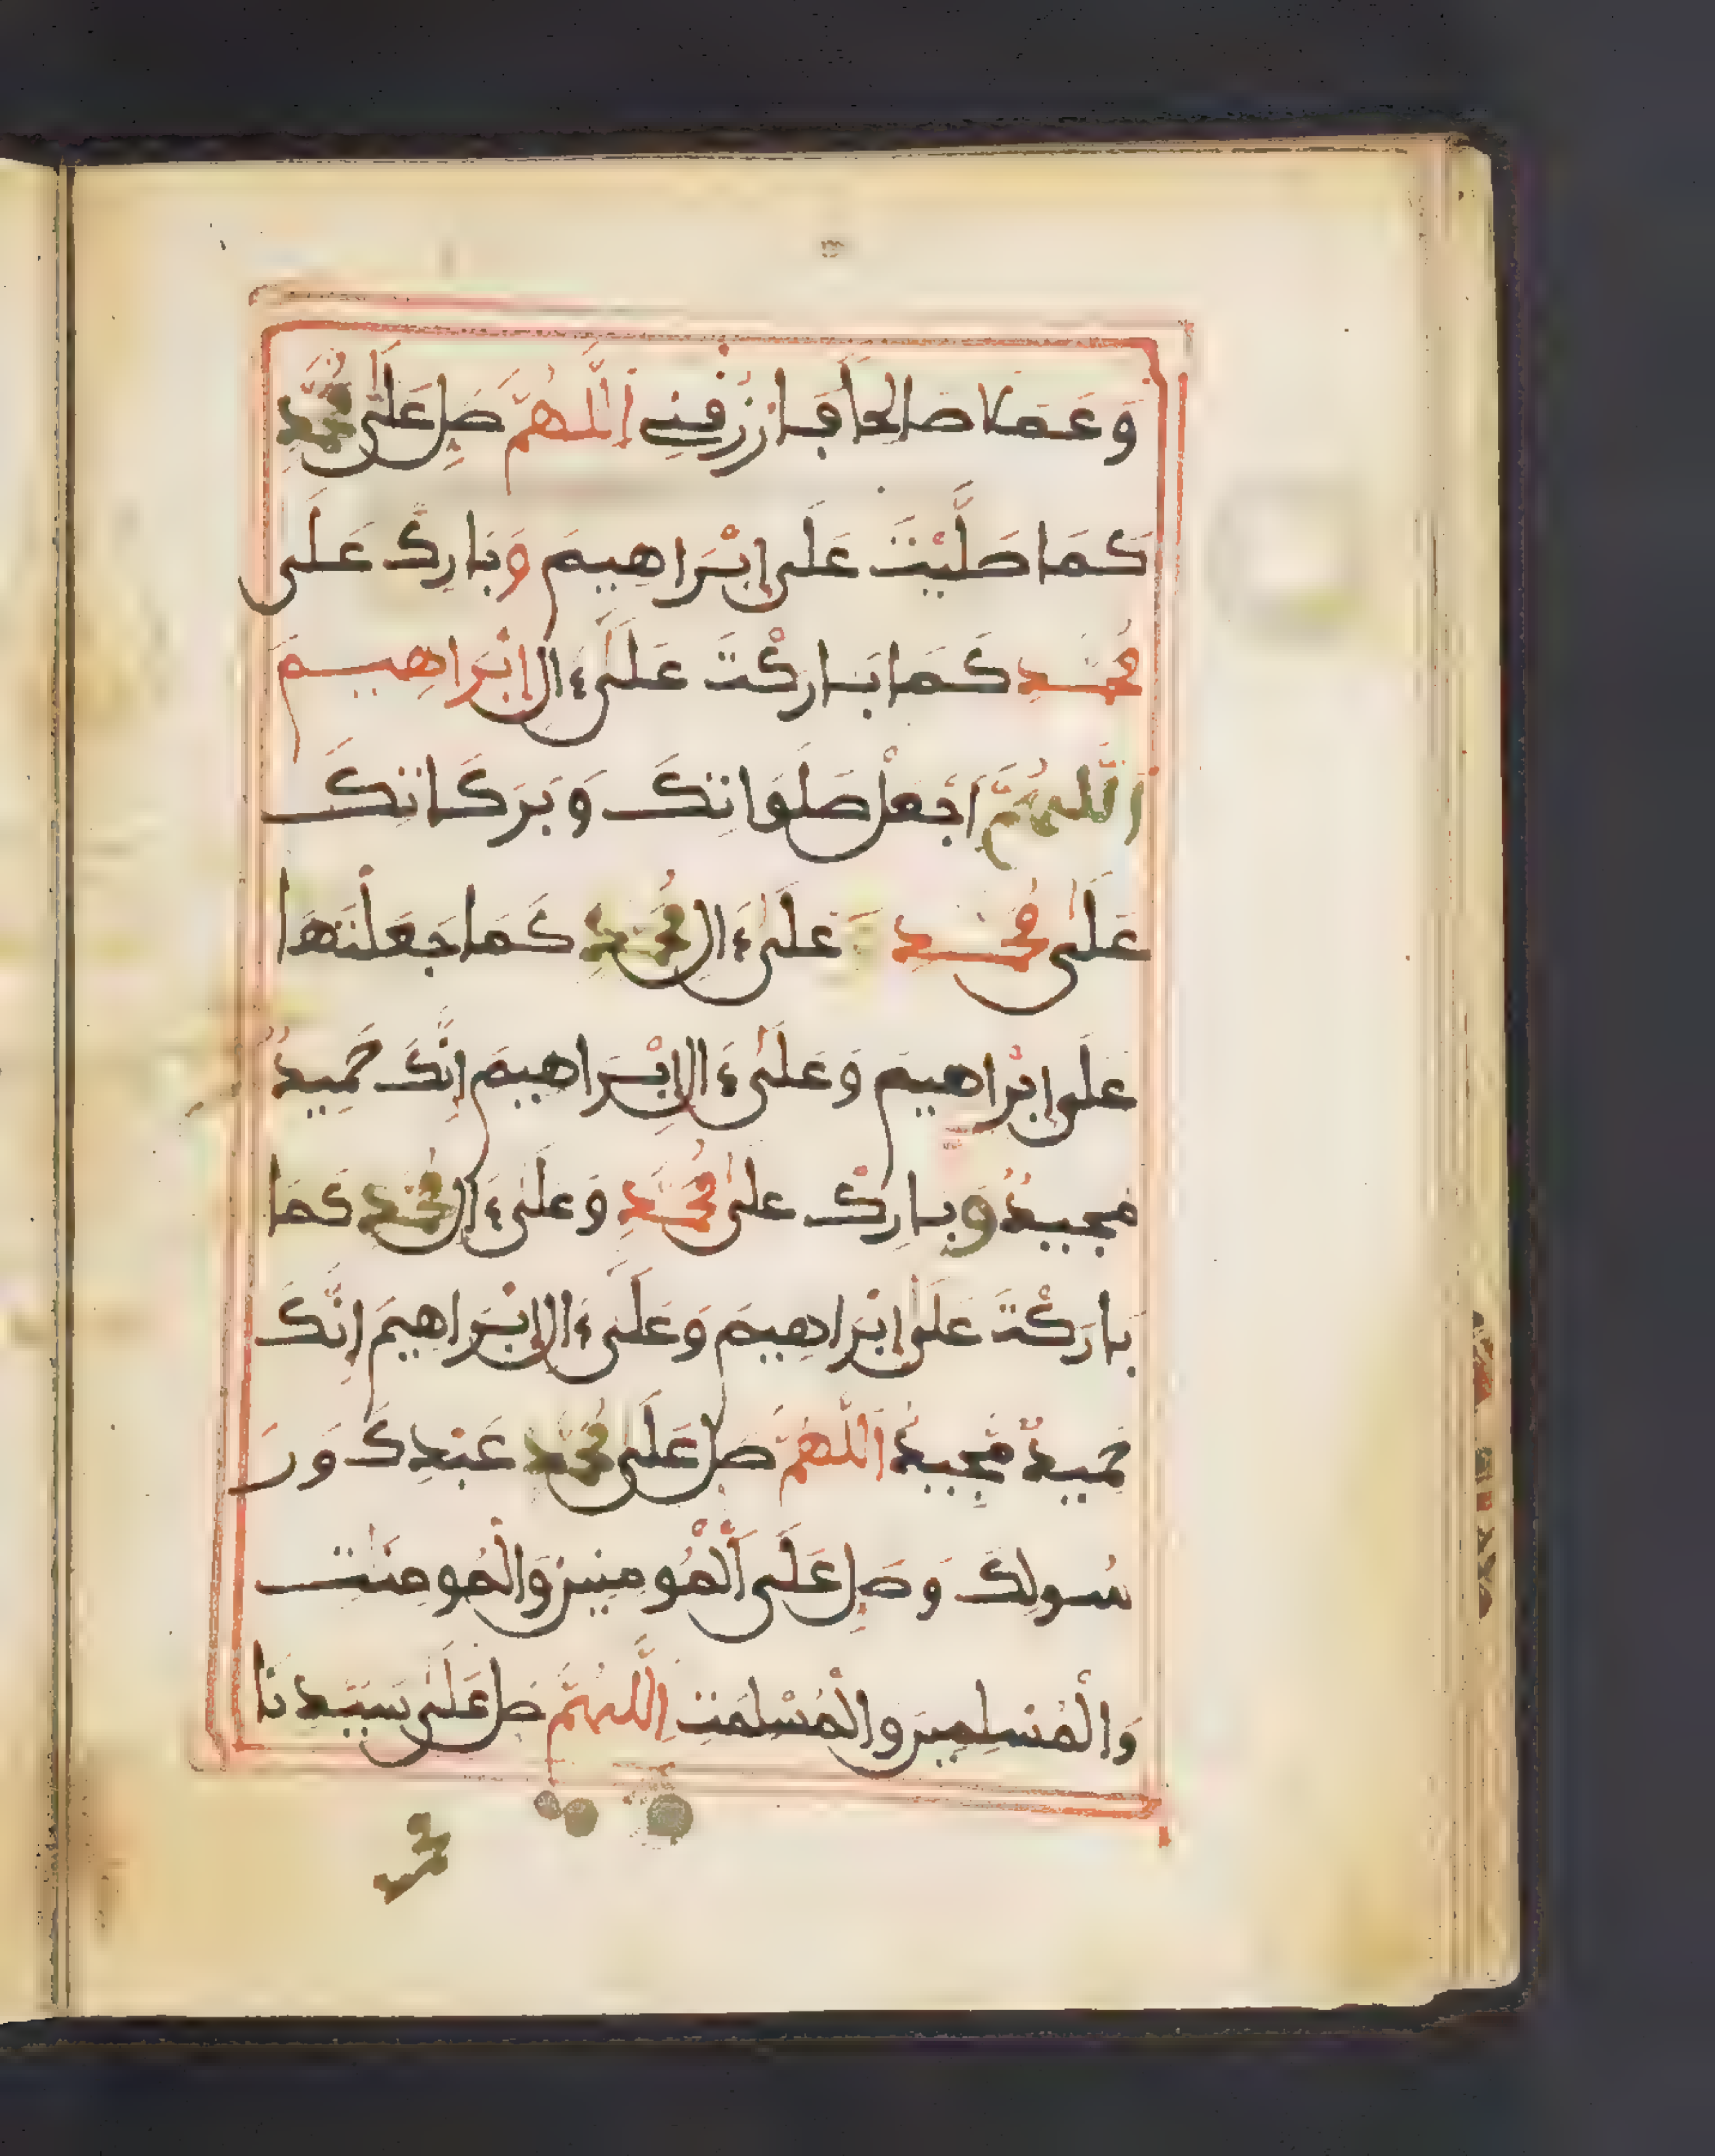 وَعَمَلا صَالحاً فَارْزُفْنِے اَللَّهُمَّ صَلِّ عَلَىٰ مُحَمَّدٍ
كَمَا صَلَّيْتَ عَلَى إِبْرَاهِيمَ وَبَارِكْ عَلَى
مُحَمَّدٍ كَمَا بَارَكْتَ عَلَىٰ ءَالِ إِبْرَاهِيمَ
اَللَّهُمَّ اجْعَلْ صَلَوَاتِكَ وَبَرَكَاتِكَ
عَلَىٰ مُحَمَّدٍ وَعَلَىٰ ءَالِ مُحَمَّدٍ كَمَا جَعَلْتَهَا
عَلَى إِبْرَاهِيمَ وَعَلَىٰ ءَالِ إِبْرَاهِيمَ إِنَّكَ حَمِيدٌ
مَجِيدٌ وَبَارِكْ عَلَىٰ مُحَمَّدٍ وَعَلَىٰ ءَالِ مُحَمَّدٍ كَمَا
بَارَكْتَ عَلَى إِبْرَاهِيمَ وَعَلَىٰ ءَالِ إِبْرَاهِيمَ إِنَّكَ
حَمِيدٌ مَّجِيدٌ اَللَّهُمَّ صَلِّ عَلَىٰ مُحَمَّدٍ عَبْدِكَ وَرَ
سُولِكَ وَصَلِّ عَلَى اَلْمُومِنِينَ وَالْمُومِنَٰتِ
وَالْمُسْلِمِينَ وَالْمُسْلِمَٰتِ اِللَّهُمَّ صَلِّ عَلَىٰ سَيِّدِنَا
محمد